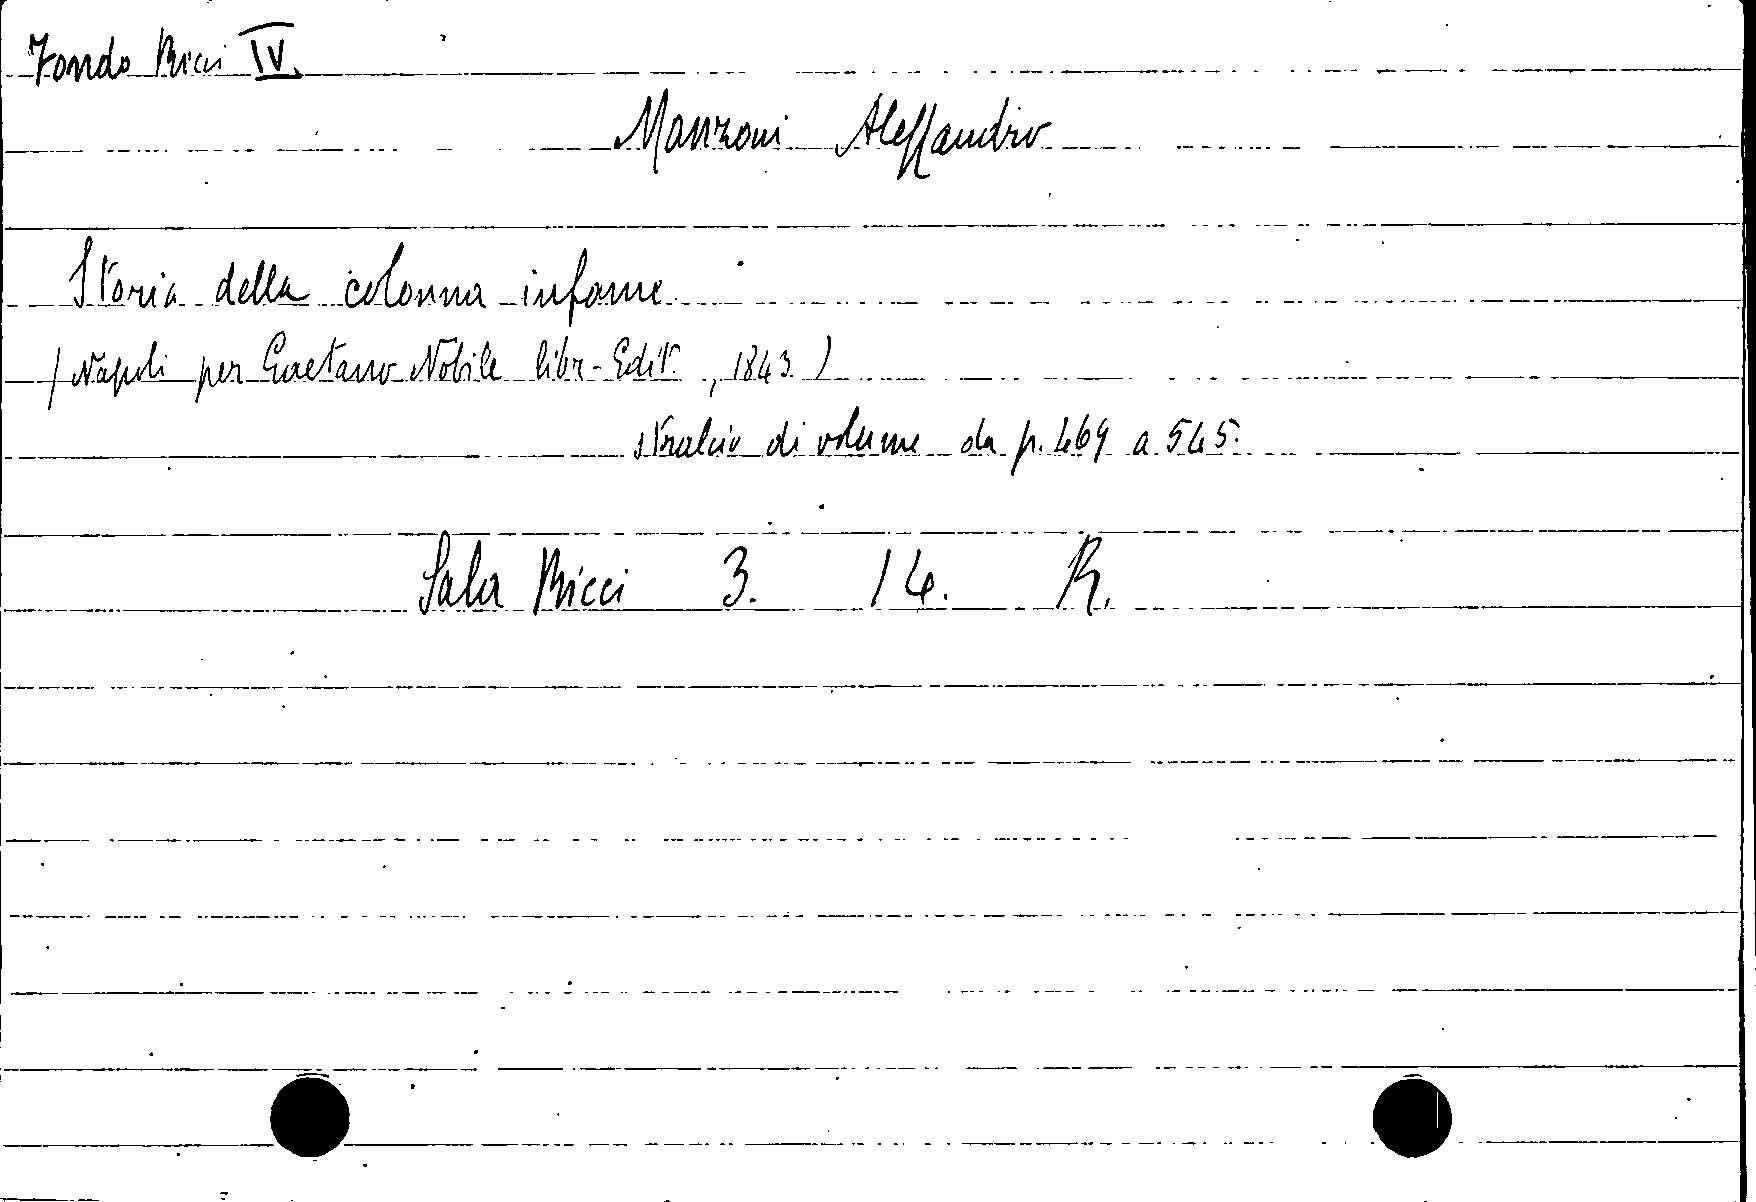 Fondo Ricci IV
Manzoni Alessandro
Storia della colonna infame
(Napoli per Gaetano Nobile libr-Edit. , 1843.)
stralcio di volume da p. 469 a 545.
Sala Ricci 3. 14. R.